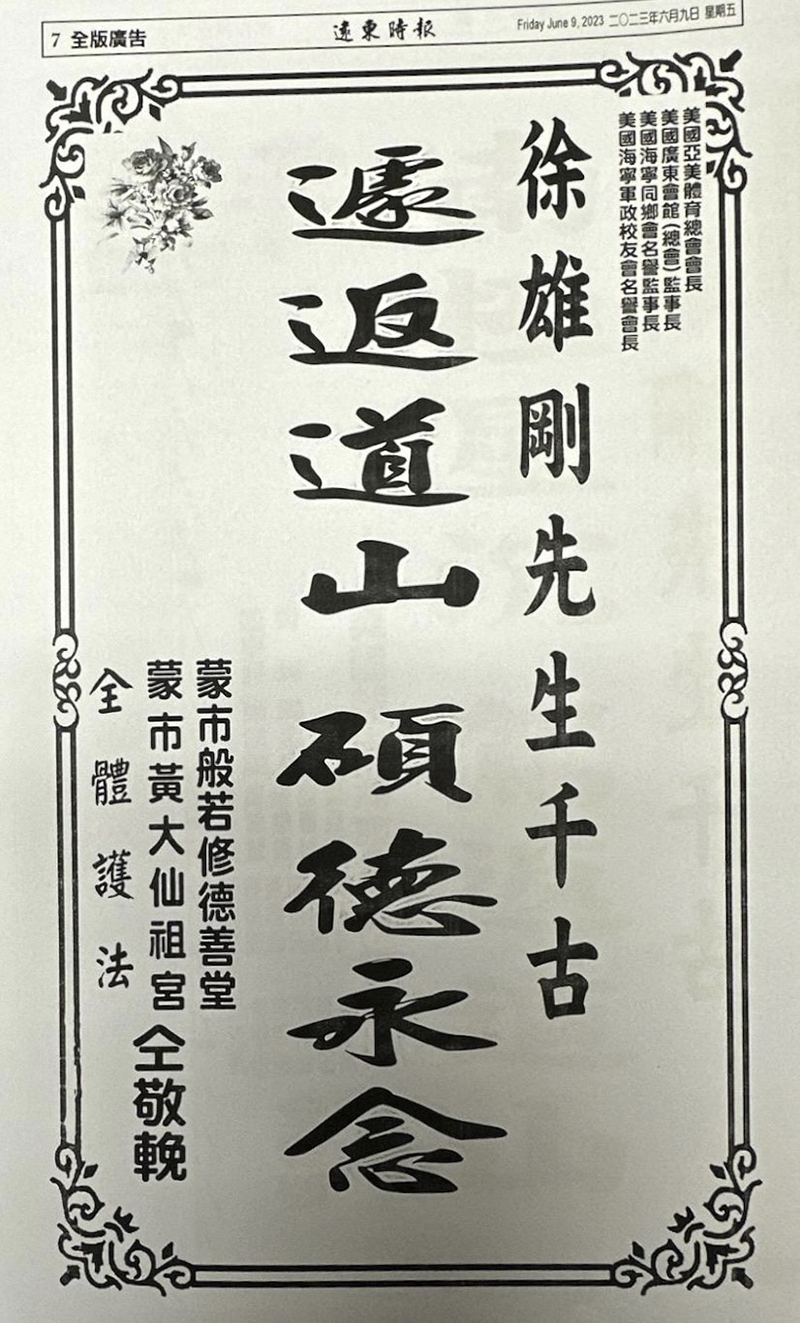 7 全版廣告
遠東時報
Friday June 9, 2023 二〇二三年六月九日 星期五
美國亞美體育總會會長
美國廣東會館(總會)監事長
美國海寧同鄉會名譽監事長
美國海寧軍政校友會名譽會長
徐雄剛先生千古
遽返道山 碩德永念
蒙市般若修德善堂
蒙市黃大仙祖宮
全體護法
仝敬輓